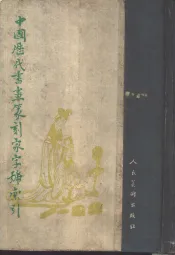 中國歷代書畫篆刻家字號索引
人民美術出版社